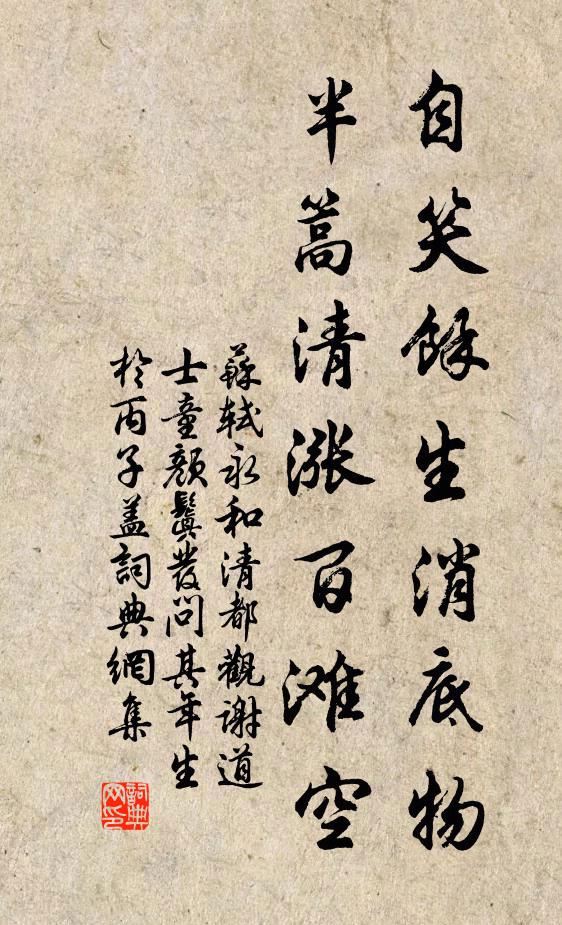 自笑餘生消底物
半篙清漲百滩空
蘇軾永和清都觀謝道
士童顏鬒發問其年生
於丙子蓋詞典網集
詞典
网印